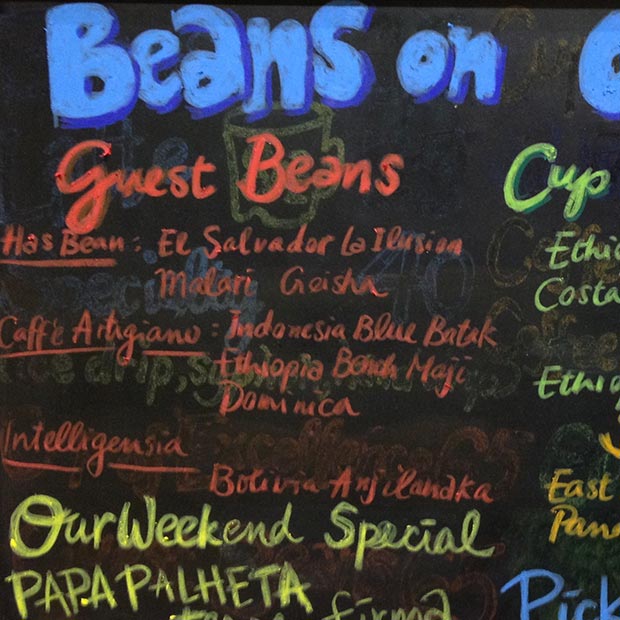 Beans on
Guest Beans
Has Bean: El Salvador La Ilusion
Malari Geisha
Caffe Artigiano: Indonesia Blue Batak
Ethiopia Bench Maji
Dominica
Intelligensia
Bolivia Anjilanaka
Our Weekend Special
PAPA PALHETA
firma
Cup
Ethio
Costa
Ethio
East
Pana
Pick